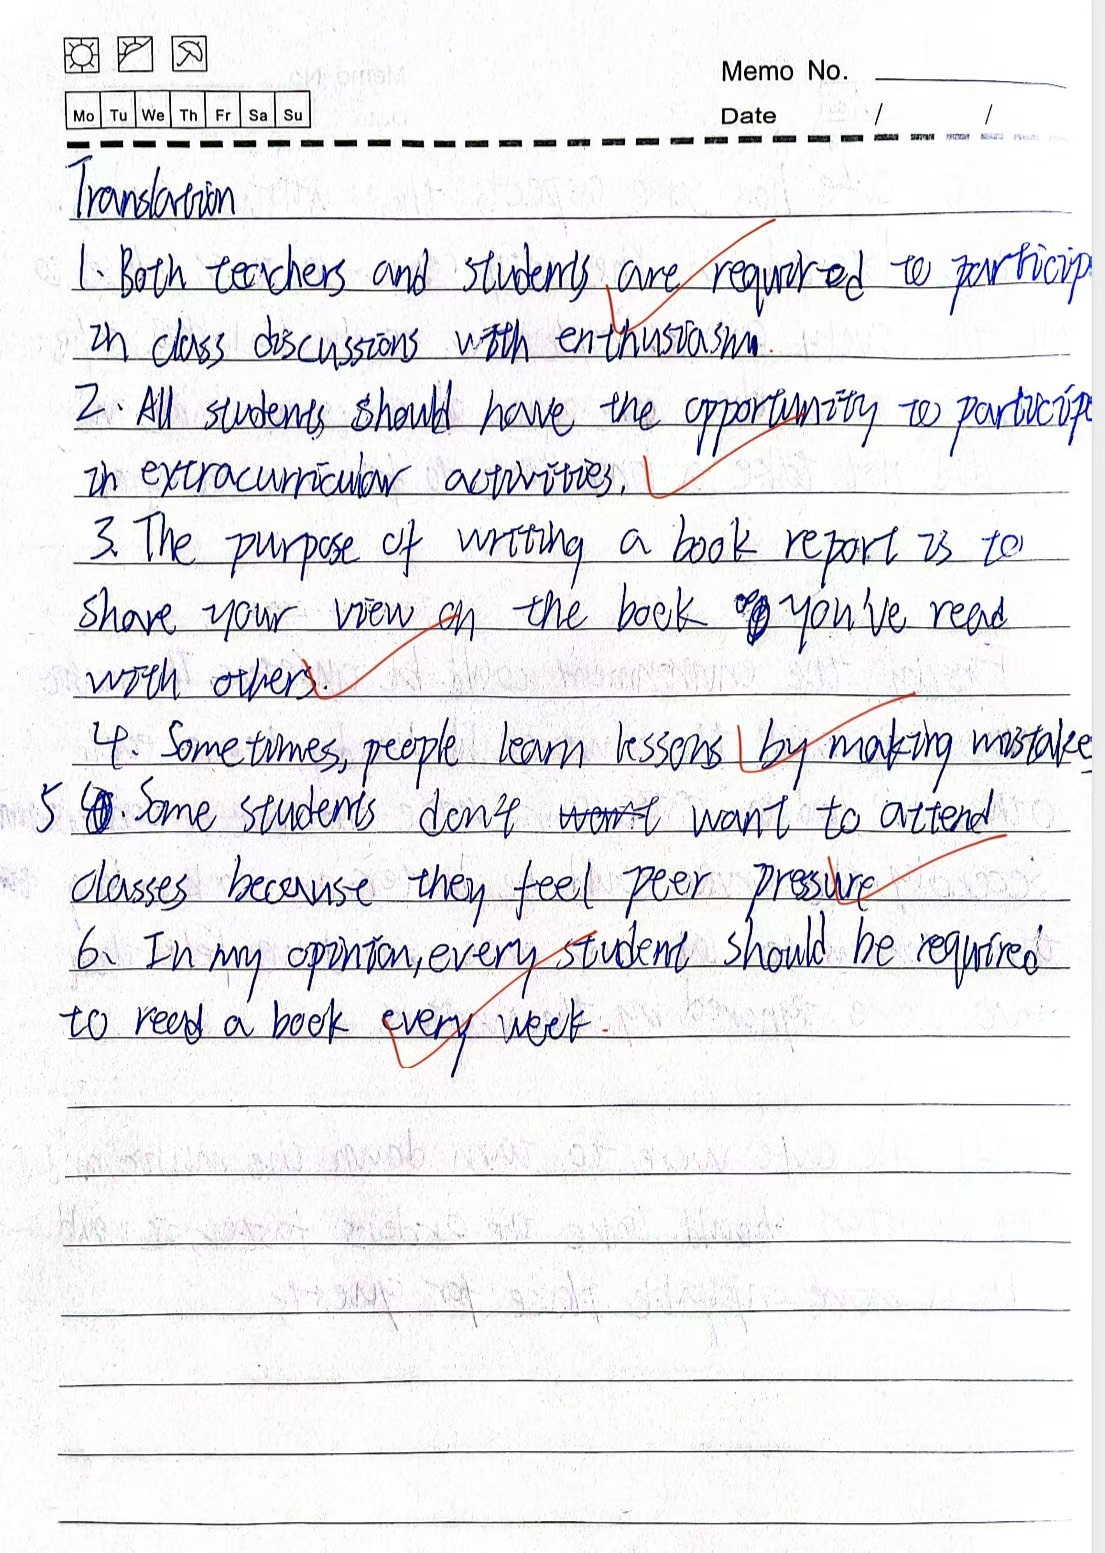 Memo No.
Mo Tu We Th Fr Sa Su
Date / /
Translation
1. Both teachers and students are required to particip
in class discussions with enthusiasm.
2. All students should have the opportunity to particip
in extracurricular activities.
3. The purpose of writing a book report is to
share your view on the book you've read
with others.
4. Sometimes, people learn lessons by making mistake
5 . Some students don't want to attend
classes because they feel peer pressure
6. In my opinion, every student should be required
to read a book every week.